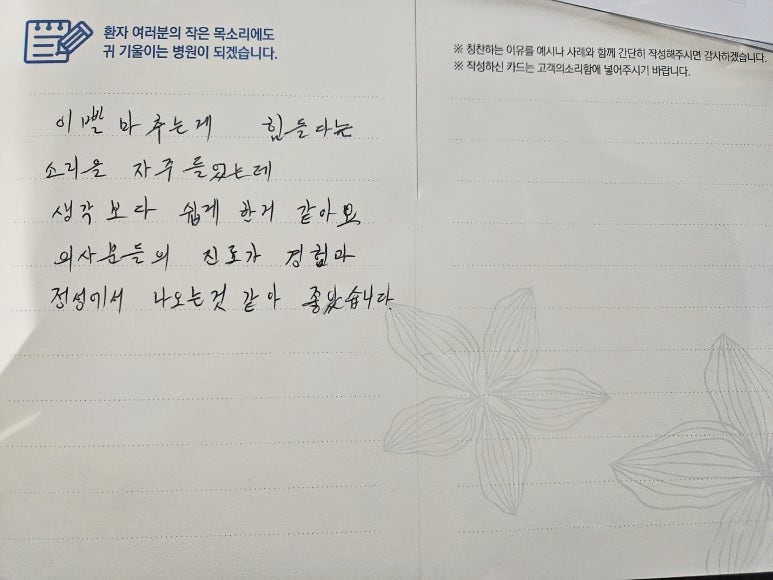 환자 여러분의 작은 목소리에도
귀 기울이는 병원이 되겠습니다.
※ 칭찬하는 이유를 예시나 사례와 함께 간단히 작성해주시면 감사하겠습니다.
※ 작성하신 카드는 고객의소리함에 넣어주시기 바랍니다.
이빨 마추는게 힘들다는
소리을 자주 들었는데
생각보다 쉽게 한거 같아요
의사분들의 진료가 경험과
정성에서 나오는것 같아 좋았습니다.